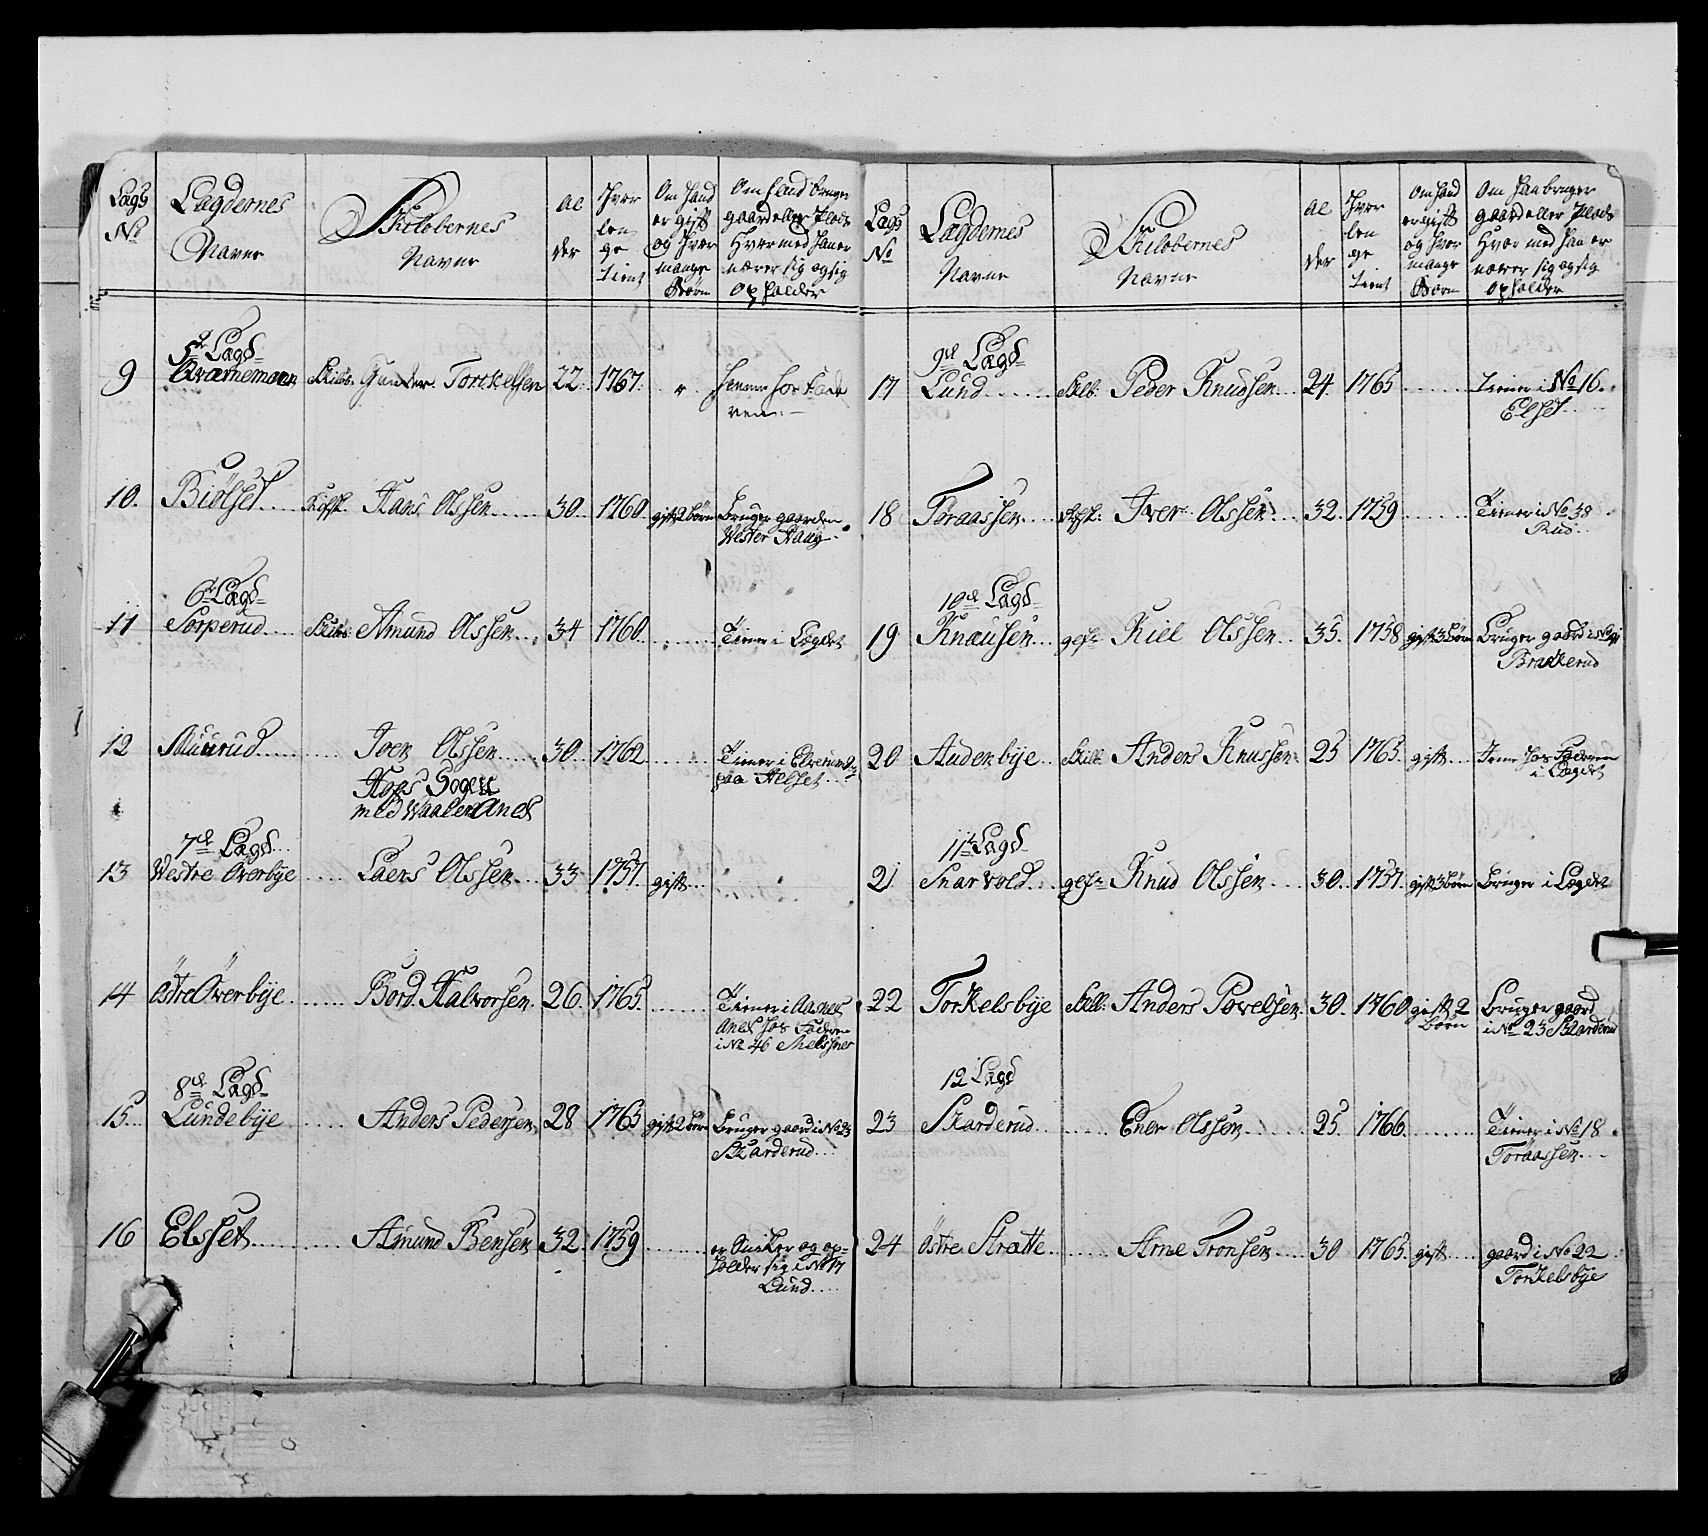 Lægs No | Lægdernes Navne | Skiløbernes Navne | Al der | Hvor len ge tient | Om hand er gift og hvor mange Børn | Om hand bruger gaard eller Plads Hvormed han er nærer sig og sig opholder
5te Lægd
9 | Kværnemoen | Skilb. Gunder Torckelsen | 22 | 1767 | " | hemme hos Fade ren
10. | Biølset | Hans Olssen | 30 | 1760 | gift 2 børn | Bruger gaarden Wester Haug
6te Lægd
11 | Sorperud | Skilb. Amund Olssen | 34 | 1760 | Tiener i Lægdet
12 | Muurud | Joen Olssen | 30 | 1762 | Tiener i Elverum paa Helset
Hofs Sogn
med Waaler Anex
7de Lægd
13 | Westre Overbye | Laers Olssen | 33 | 1757 | gift
14 | Østre Øverbye | Bord Halvorsen | 26 | 1765 | Tiener i Aasnes Anex hos Fadren i No 46
8de Lægd
15 | Lundebye | Anders Pedersen | 28 | 1763 | gift 2 børn | Bruger gaard i No 23 Skarderud
16 | Elsset | Amund Bensen | 32 | 1759 | er Sniker og op- holder sig i No 17 Lund
Lægs No | Lægdernes Navne | Skiløbernes Navne | Al der | Hvor len ge tient | Om hand er gift og hvor mange Børn | Om han bruger gaard eller Plads Hvor med han er nærer sig og sig opholder
9de Lægd
17 | Lund | Skilb. Peder Knudsen | 24 | 1765 | Tiener i No 16. Elset
18 | Toraassen | Iver Olssen | 32 | 1759 | Tiener i No 38 Rud
10de Lægd
19 | Knausen | gefr Kiel Olssen | 35 | 1758 | gift 3 børn | Bruger gaard i No Brakkerud
20 | Audenbye | Skilb. Anders Knussen | 25 | 1765 | gift | hos Faderen i Lægdet
11te Lægd
21 | Snarvold | gefr Knud Olssen | 30 | 1757 | gift 3 børn | Bruger i Lægdet
22 | Torkelsbye | Skilb. Anders Povelsen | 30 | 1760 | gift 2 børn | Bruger gaard i No 23 Skarderud
12 Lægd
23 | Skarderud | Ener Olssen | 25 | 1766 | Tiener i No 18 Toraassen
24 | Østre Strætte | Arne Tronsen | 30 | 1765 | gift | gaard i No 22 Torkelsbye